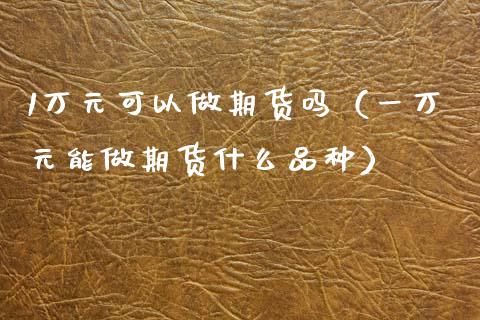 1万元可以做期货吗（一万
元能做期货什么品种）